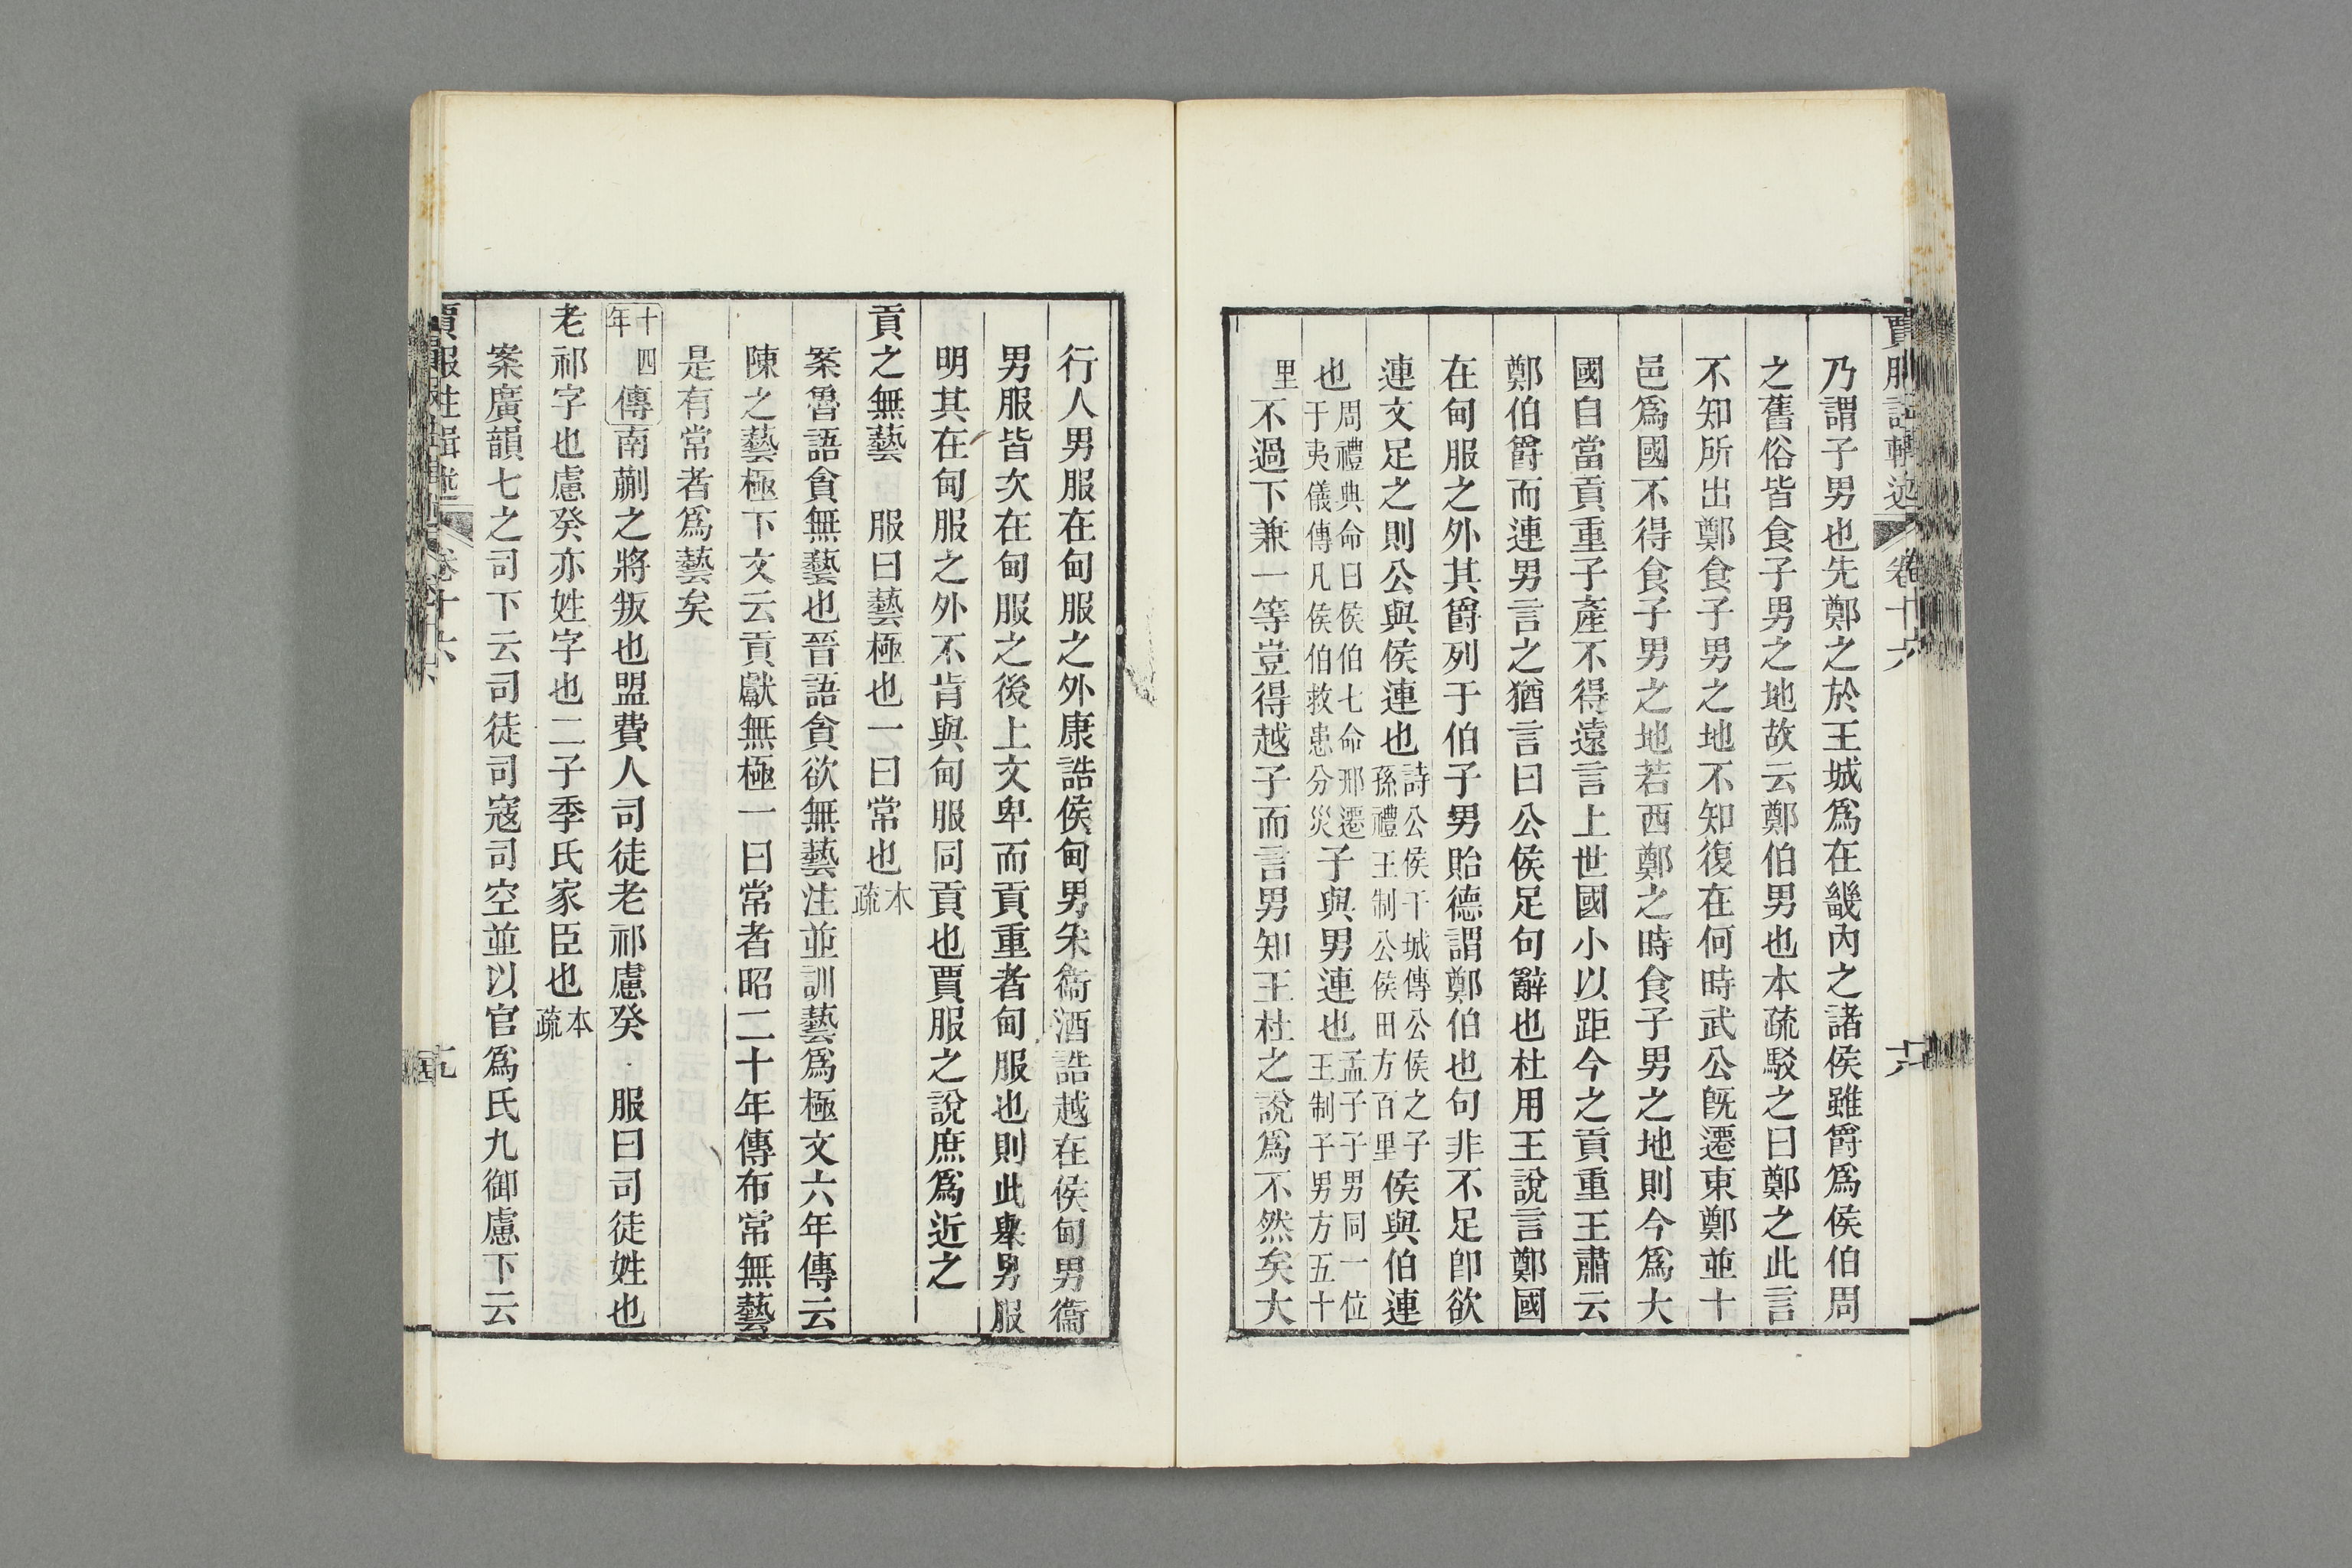 乃謂子男也先鄭之於王城爲在畿內之諸侯雖爵爲侯伯周
之舊俗皆食子男之地故云鄭伯男也本疏駁之曰鄭之此言
不知所出鄭食子男之地不知復在何時武公旣遷東鄭並十
邑爲國不得食子男之地若西鄭之時食子男之地則今爲大
國自當貢重子產不得遠言上世國小以距今之貢重王肅云
鄭伯爵而連男言之猶言曰公侯足句辭也杜用王說言鄭國
在甸服之外其爵列于伯子男貽德謂鄭伯也句非不足卽欲
連文足之則公與侯連也詩公侯干城傳公侯之子孫禮王制公侯田方百里侯與伯連
也周禮典命曰侯伯七命邢遷于夷儀傳凡侯伯救患分災子與男連也孟子子男同一位王制子男方五十
里不過下兼一等豈得越子而言男知王杜之說爲不然矣大
行人男服在甸服之外康誥侯甸男釆衞酒誥越在侯甸男衞
男服皆次在甸服之後上文卑而貢重者甸服也則此舉男服
明其在甸服之外不肯與甸服同貢也賈服之說庶爲近之
貢之無藝 服曰藝極也一曰常也本疏
案魯語貪無藝也晉語貪欲無藝注並訓藝爲極文六年傳云
陳之藝極下文云貢獻無極一曰常者昭二十年傳布常無藝
是有常者爲藝矣
十四年傳南蒯之將叛也盟費人司徒老祁慮癸 服曰司徒姓也
老祁字也慮癸亦姓字也二子季氏家臣也本疏
案廣韻七之司下云司徒司寇司空並以官爲氏九御慮下云
卷十六